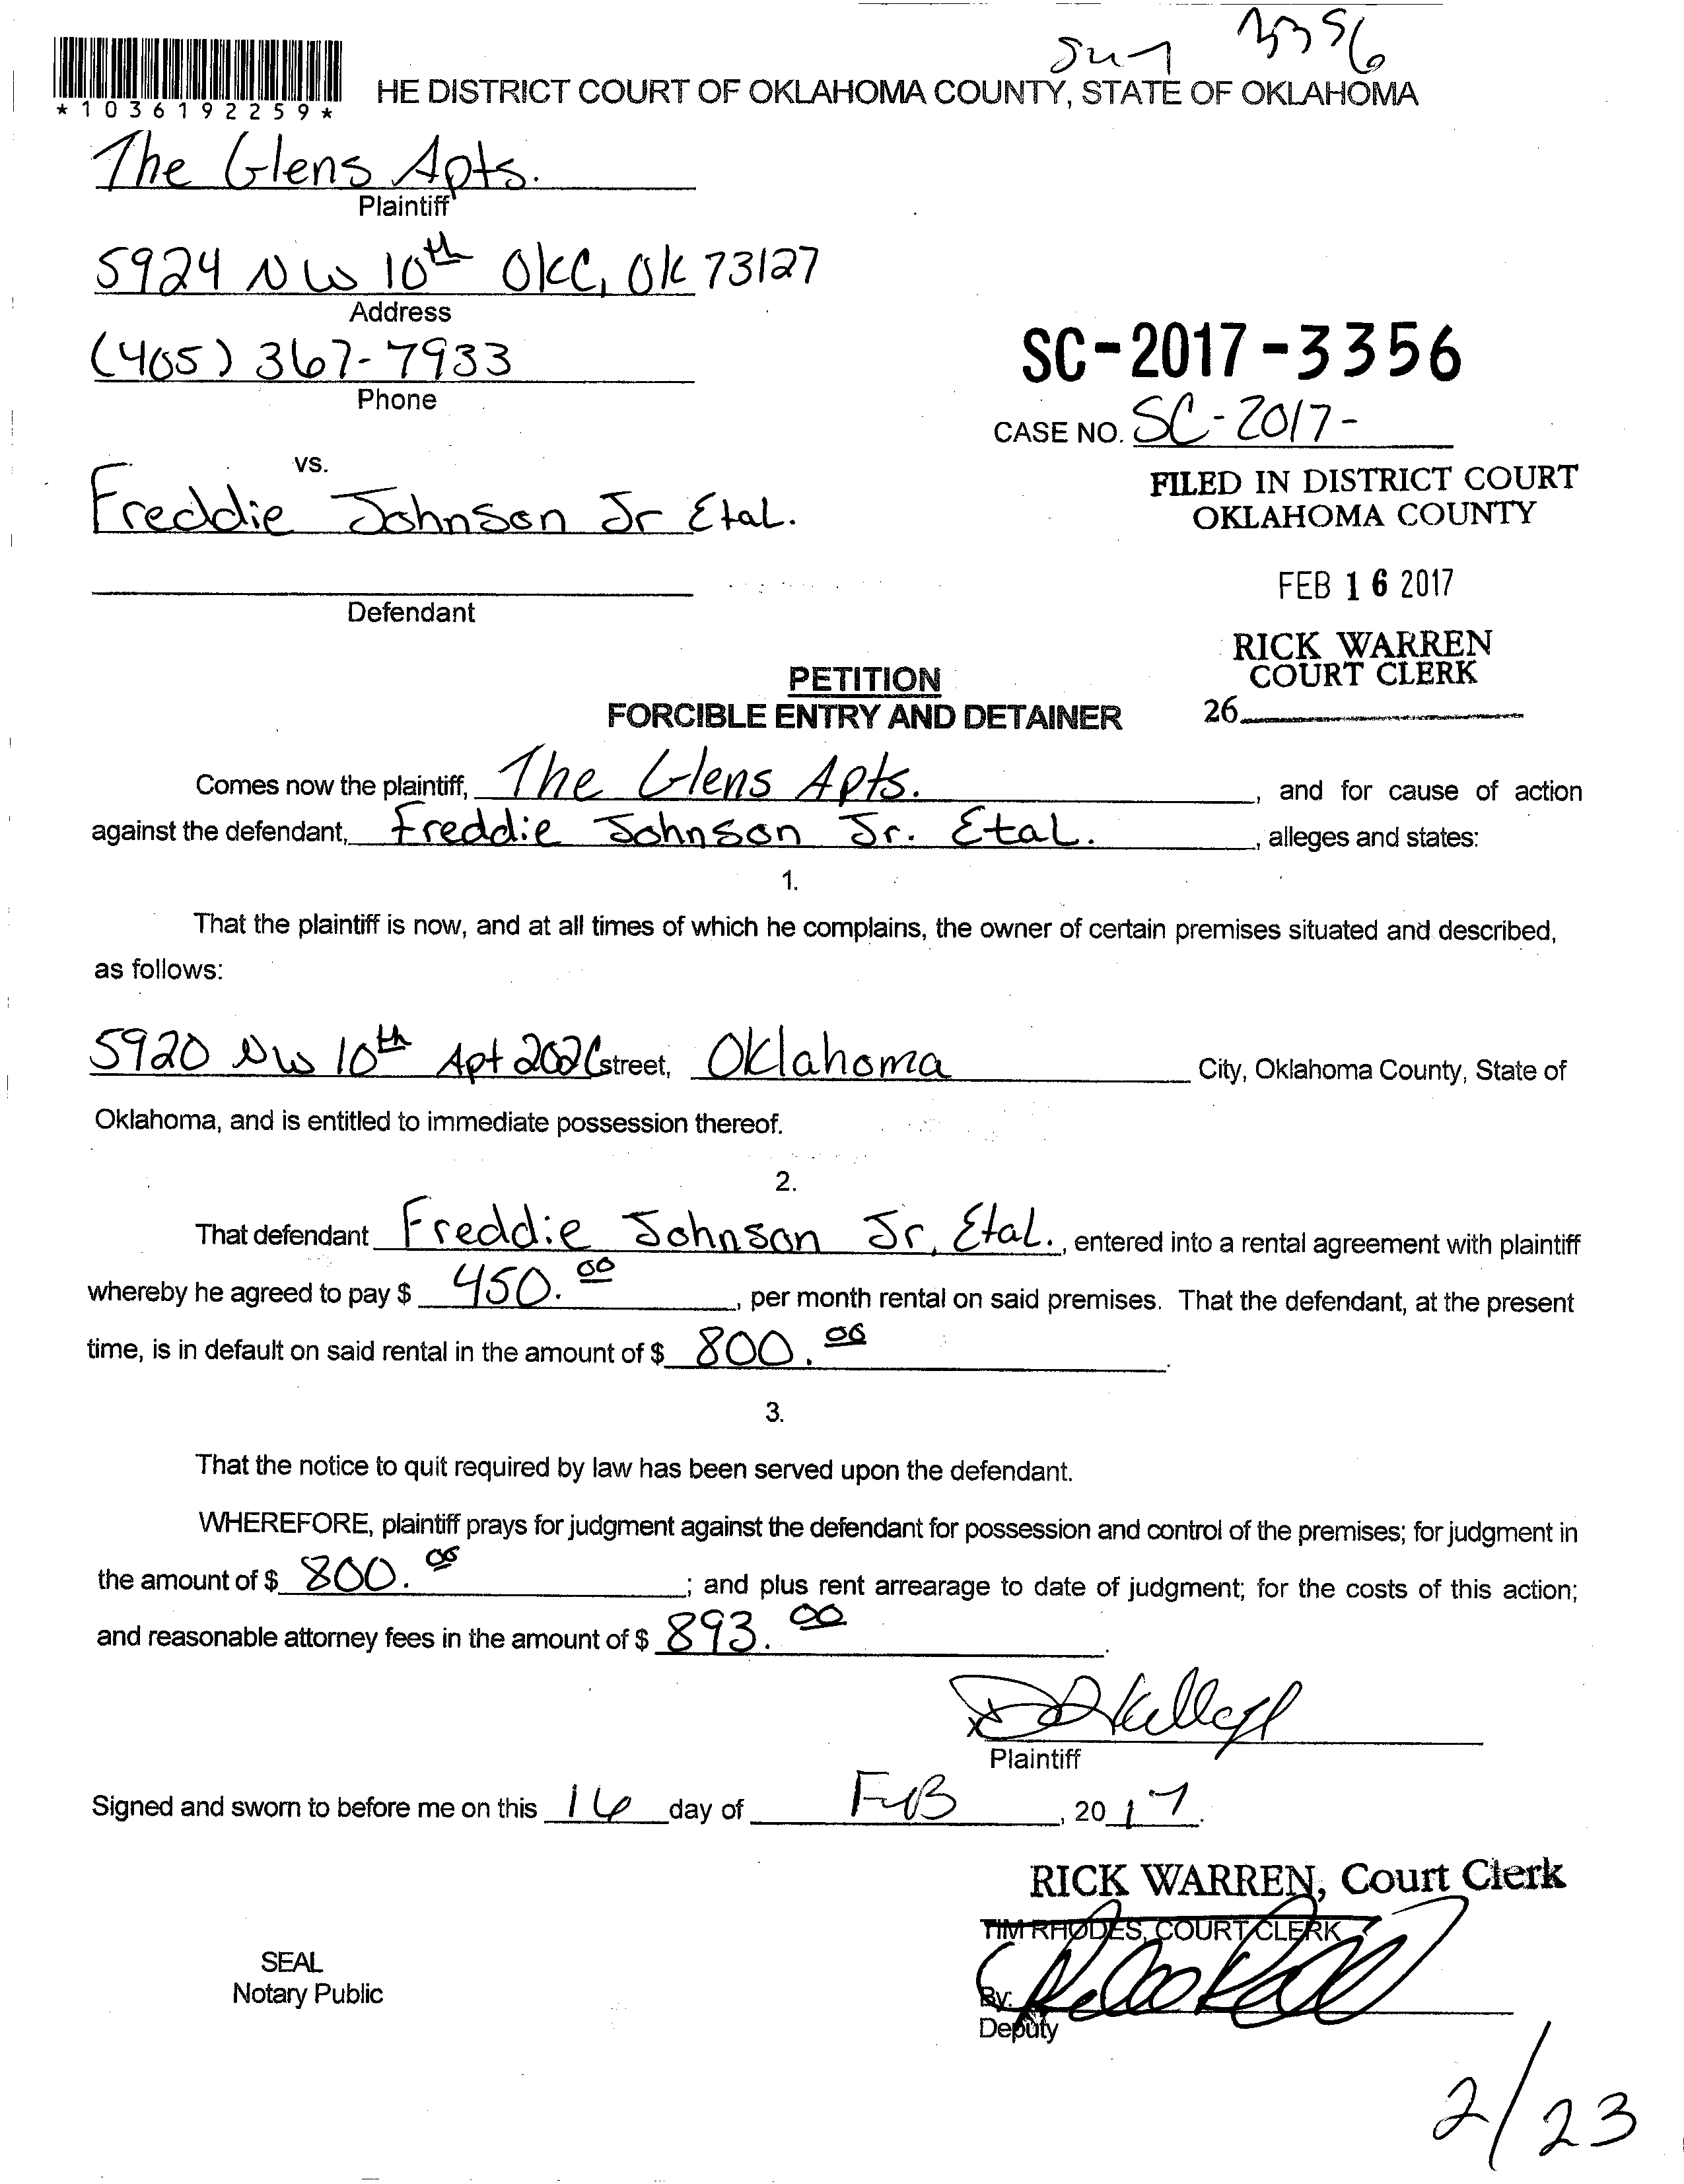 3356
*1036192259*
HE DISTRICT COURT OF OKLAHOMA COUNTY, STATE OF OKLAHOMA
The Glens Apts.
Plaintiff
5924 NW 10th OKC, OK 73127
Address
(405) 367-7933
Phone
SC-2017-3356
CASE NO. SC-2017-
vs.
Freddie Johnson Jr Etal.
Defendant
FILED IN DISTRICT COURT
OKLAHOMA COUNTY
FEB 16 2017
RICK WARREN
COURT CLERK
26
PETITION
FORCIBLE ENTRY AND DETAINER
Comes now the plaintiff, The Glens Apts., and for cause of action
against the defendant, Freddie Johnson Jr. Etal., alleges and states:
1.
That the plaintiff is now, and at all times of which he complains, the owner of certain premises situated and described,
as follows:
5920 NW 10th Apt 202C street, Oklahoma City, Oklahoma County, State of
Oklahoma, and is entitled to immediate possession thereof.
2.
That defendant Freddie Johnson Jr, Etal., entered into a rental agreement with plaintiff
whereby he agreed to pay $ 450.00, per month rental on said premises. That the defendant, at the present
time, is in default on said rental in the amount of $ 800.00.
3.
That the notice to quit required by law has been served upon the defendant.
WHEREFORE, plaintiff prays for judgment against the defendant for possession and control of the premises; for judgment in
the amount of $ 800.00; and plus rent arrearage to date of judgment; for the costs of this action;
and reasonable attorney fees in the amount of $ 893.00.
X
Plaintiff
Signed and sworn to before me on this 16 day of FEB, 2017.
RICK WARREN, Court Clerk
TIM RHODES, COURT CLERK
SEAL
Notary Public
By:
Deputy
2/23